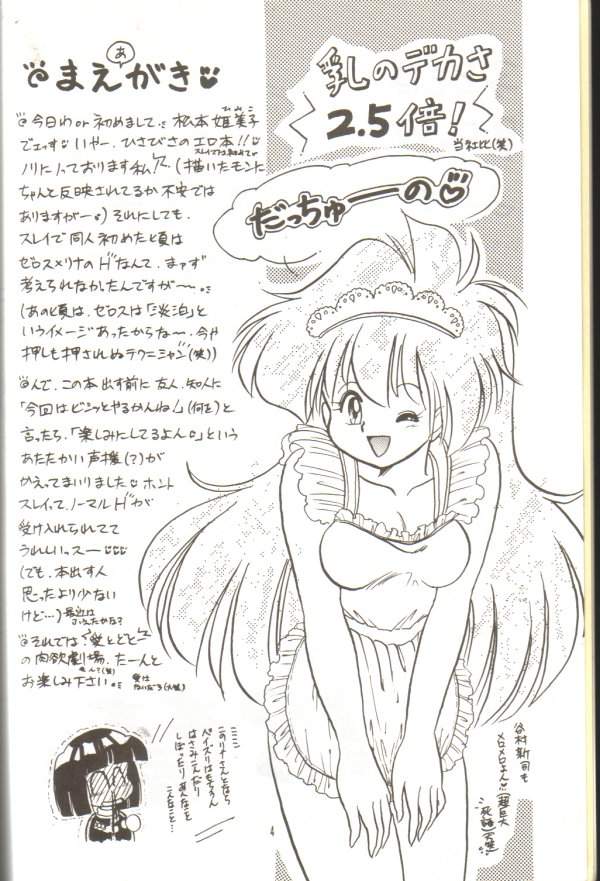 まえがき
あ
今日わor初めまして。松本姫美子
でェっす。いやー、ひさびさのエロ本!!
ノリにノッております私(描いたモンに
ちゃんと反映されてるか不安では
ありますがー。)それにしても、
スレイで同人初めた頃は
ゼロスメリナのHなんて、まァず
考えられなかったんですがー。
(あの頃は、ゼロスは「淡泊」と
いうイメージあったからなー、今や
押しも押されぬテクニシャン(笑))
んで、この本出す前に友人、知人に
「今回はビシッとやるかんね!」(何を)と
言ったら、「楽しみにしてるよん」という
あたたかい声援(?)が
かえってまいりました。ホント
スレイって、ノーマルHが
受け入れられてて
うれしいっスー
(でも、本出す人
思ったより少ない
けど…)
それでは、愛と
の肉欲劇場、たーんと
お楽しみ下さい。
乳しのデカさ
2.5倍!
当社比(笑)
だっちゅーの
このリナさんとなら
パイズリはもちろん
はさみこんだり
しぼったりあんなこと
こんなこと
谷村新司も
メロメロよん
(超巨大
死語)(大笑)
4